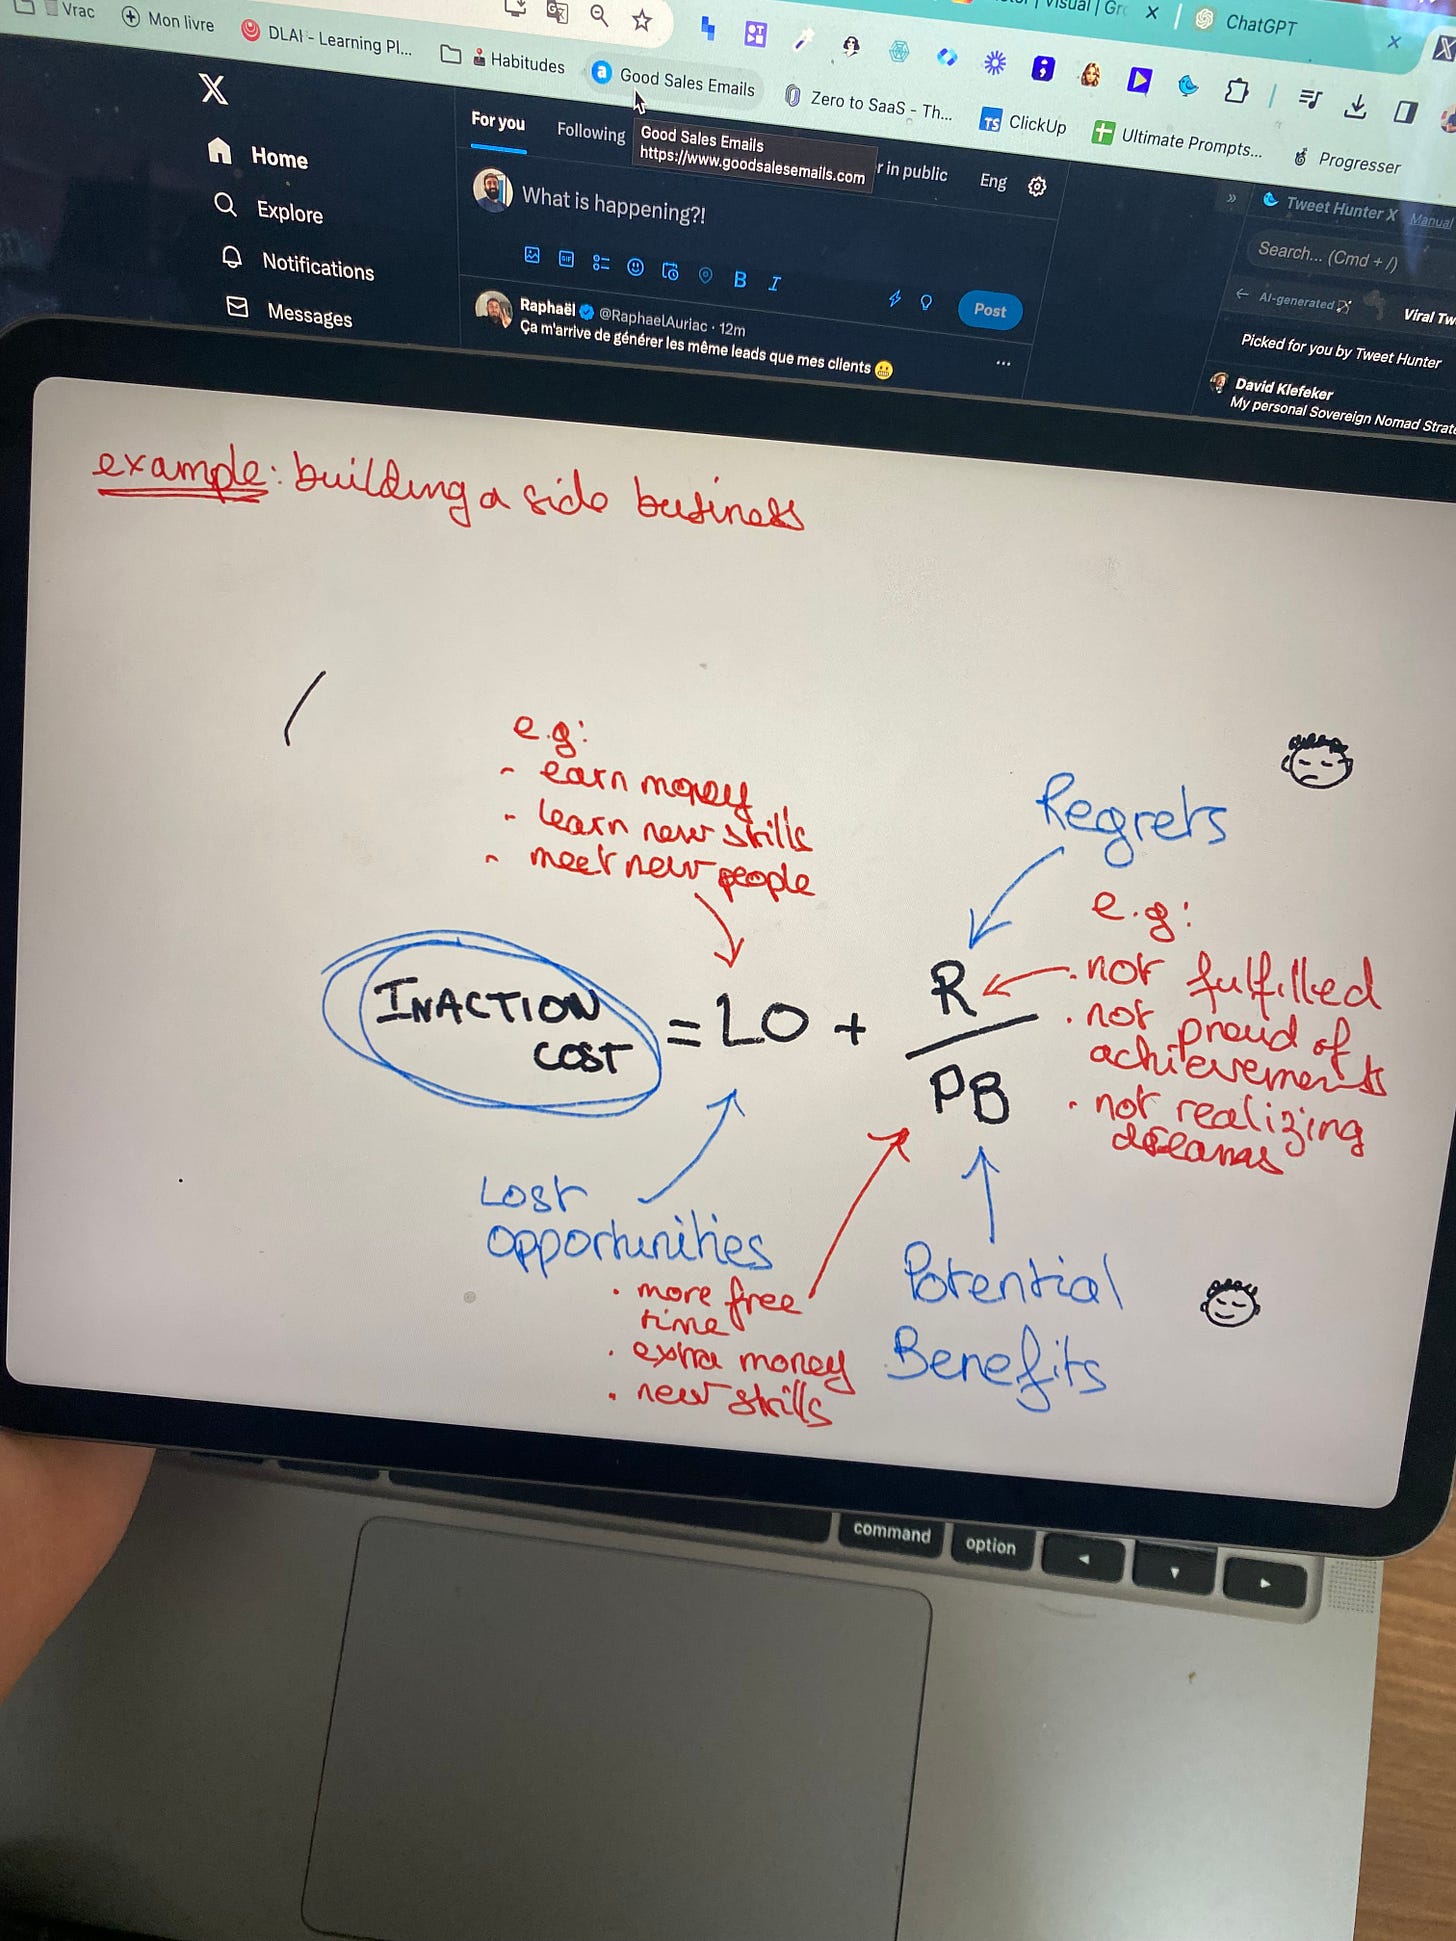 Vrac
Mon livre
DLAI - Learning Pl...
Habitudes
Good Sales Emails
Zero to SaaS - Th...
ClickUp
Ultimate Prompts...
Progresser
Visual | Gr
ChatGPT
Good Sales Emails
https://www.goodsalesemails.com
X
Home
Explore
Notifications
Messages
For you
Following
r in public
Eng
What is happening?!
GIF
B I
Post
Raphaël @RaphaelAuriac · 12m
Ça m'arrive de générer les même leads que mes clients 😬
Tweet Hunter X Manual
Search... (Cmd + /)
AI-generated
Viral Tw
Picked for you by Tweet Hunter
David Klefeker
My personal Sovereign Nomad Strate
example: building a side business
e.g:
- earn money
- learn new skills
- meet new people
Regrets
e.g:
. not fulfilled
. not proud of
achievements
. not realizing
dreams
INACTION
COST
= LO + R
PB
Lost
opportunities
. more free
time
. extra money
. new skills
Potential
Benefits
command
option